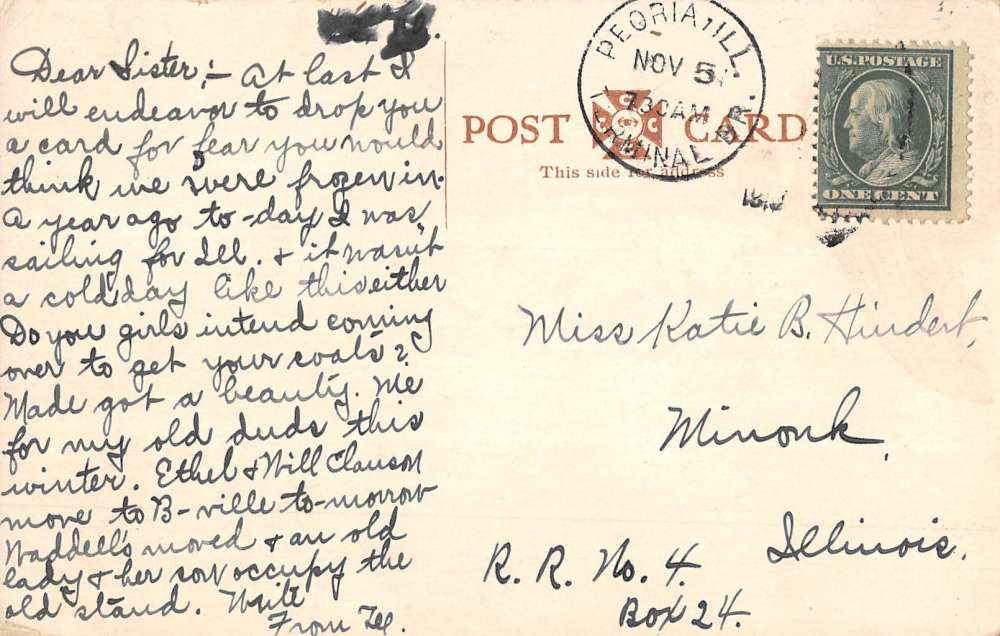 Dear Sister;- At last I
will endeavor to drop you
a card for fear you would
think we were frozen in.
A year ago to-day I was
sailing for Ill. & it wasn't
a cold day like this either
Do you girls intend coming
over to get your coats?
Made got a beauty. Me
for my old duds this
winter. Ethel & Will Clauson
move to B-ville to-morrow
Waddell's moved & an old
lady & her son occupy the
old stand. Write
From
PEORIA, ILL.
NOV 5
730AM
TERMINAL
POST CARD
This side for address
U.S. POSTAGE
ONE CENT
Miss Katie B. Hindert,
Minonk,
Illinois.
R. R. No. 4.
Box 24.